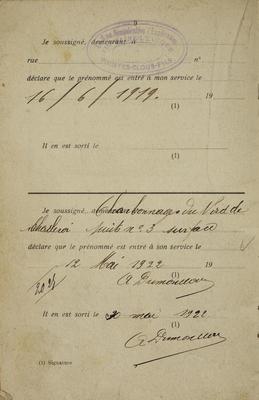 9
Je soussigné, demeurant à
rue n°
déclare que le prénommé est entré à mon service le
16/6/1919. 19
(1)
Il en est sorti le
(1)
Je soussigné, Charbonnages du Nord de
Charleroi puits n° 3 surface
déclare que le prénommé est entré à son service le
12 Mai 1922 19
(1)
Il en est sorti le 30 mai 1922
(1)
(1) Signature